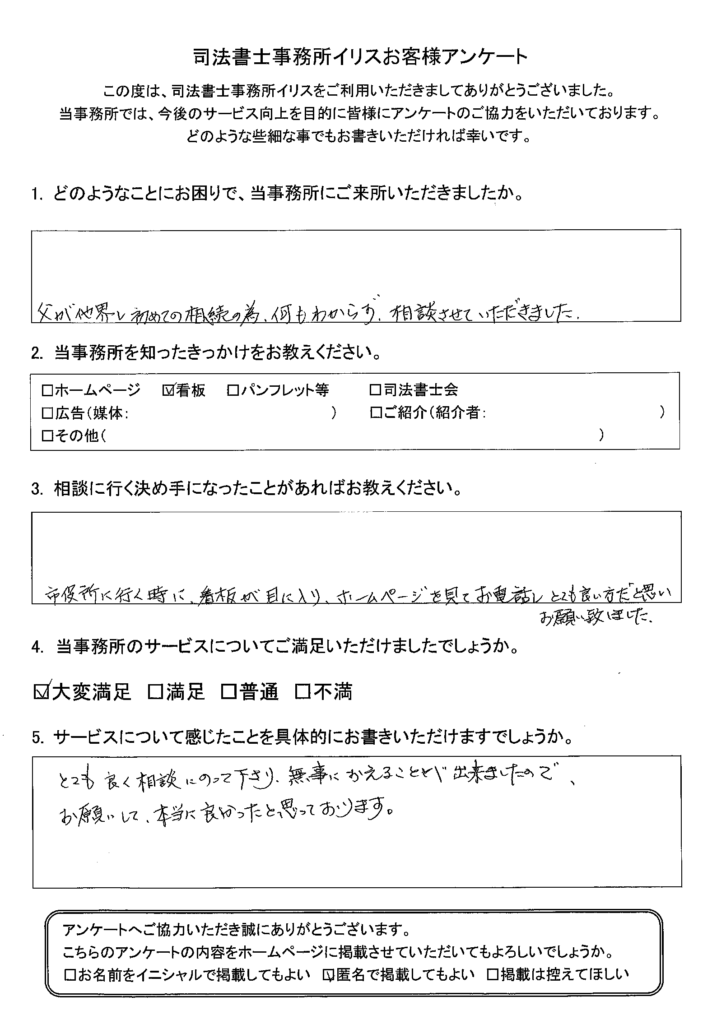 司法書士事務所イリスお客様アンケート
この度は、司法書士事務所イリスをご利用いただきましてありがとうございました。
当事務所では、今後のサービス向上を目的に皆様にアンケートのご協力をいただいております。
どのような些細な事でもお書きいただければ幸いです。
1. どのようなことにお困りで、当事務所にご来所いただきましたか。
父が他界し初めての相続の為、何もわからず、相談させていただきました。
2. 当事務所を知ったきっかけをお教えください。
□ホームページ ☑看板 □パンフレット等 □司法書士会
□広告(媒体: ) □ご紹介(紹介者: )
□その他( )
3. 相談に行く決め手になったことがあればお教えください。
市役所に行く時に、看板が目に入り、ホームページを見てお電話しとても良い方だと思い
お願い致しました。
4. 当事務所のサービスについてご満足いただけましたでしょうか。
☑大変満足 □満足 □普通 □不満
5. サービスについて感じたことを具体的にお書きいただけますでしょうか。
とても良く相談にのって下さり、無事にかえることが出来ましたので、
お願いして、本当に良かったと思っております。
アンケートへご協力いただき誠にありがとうございます。
こちらのアンケートの内容をホームページに掲載させていただいてもよろしいでしょうか。
□お名前をイニシャルで掲載してもよい ☑匿名で掲載してもよい □掲載は控えてほしい